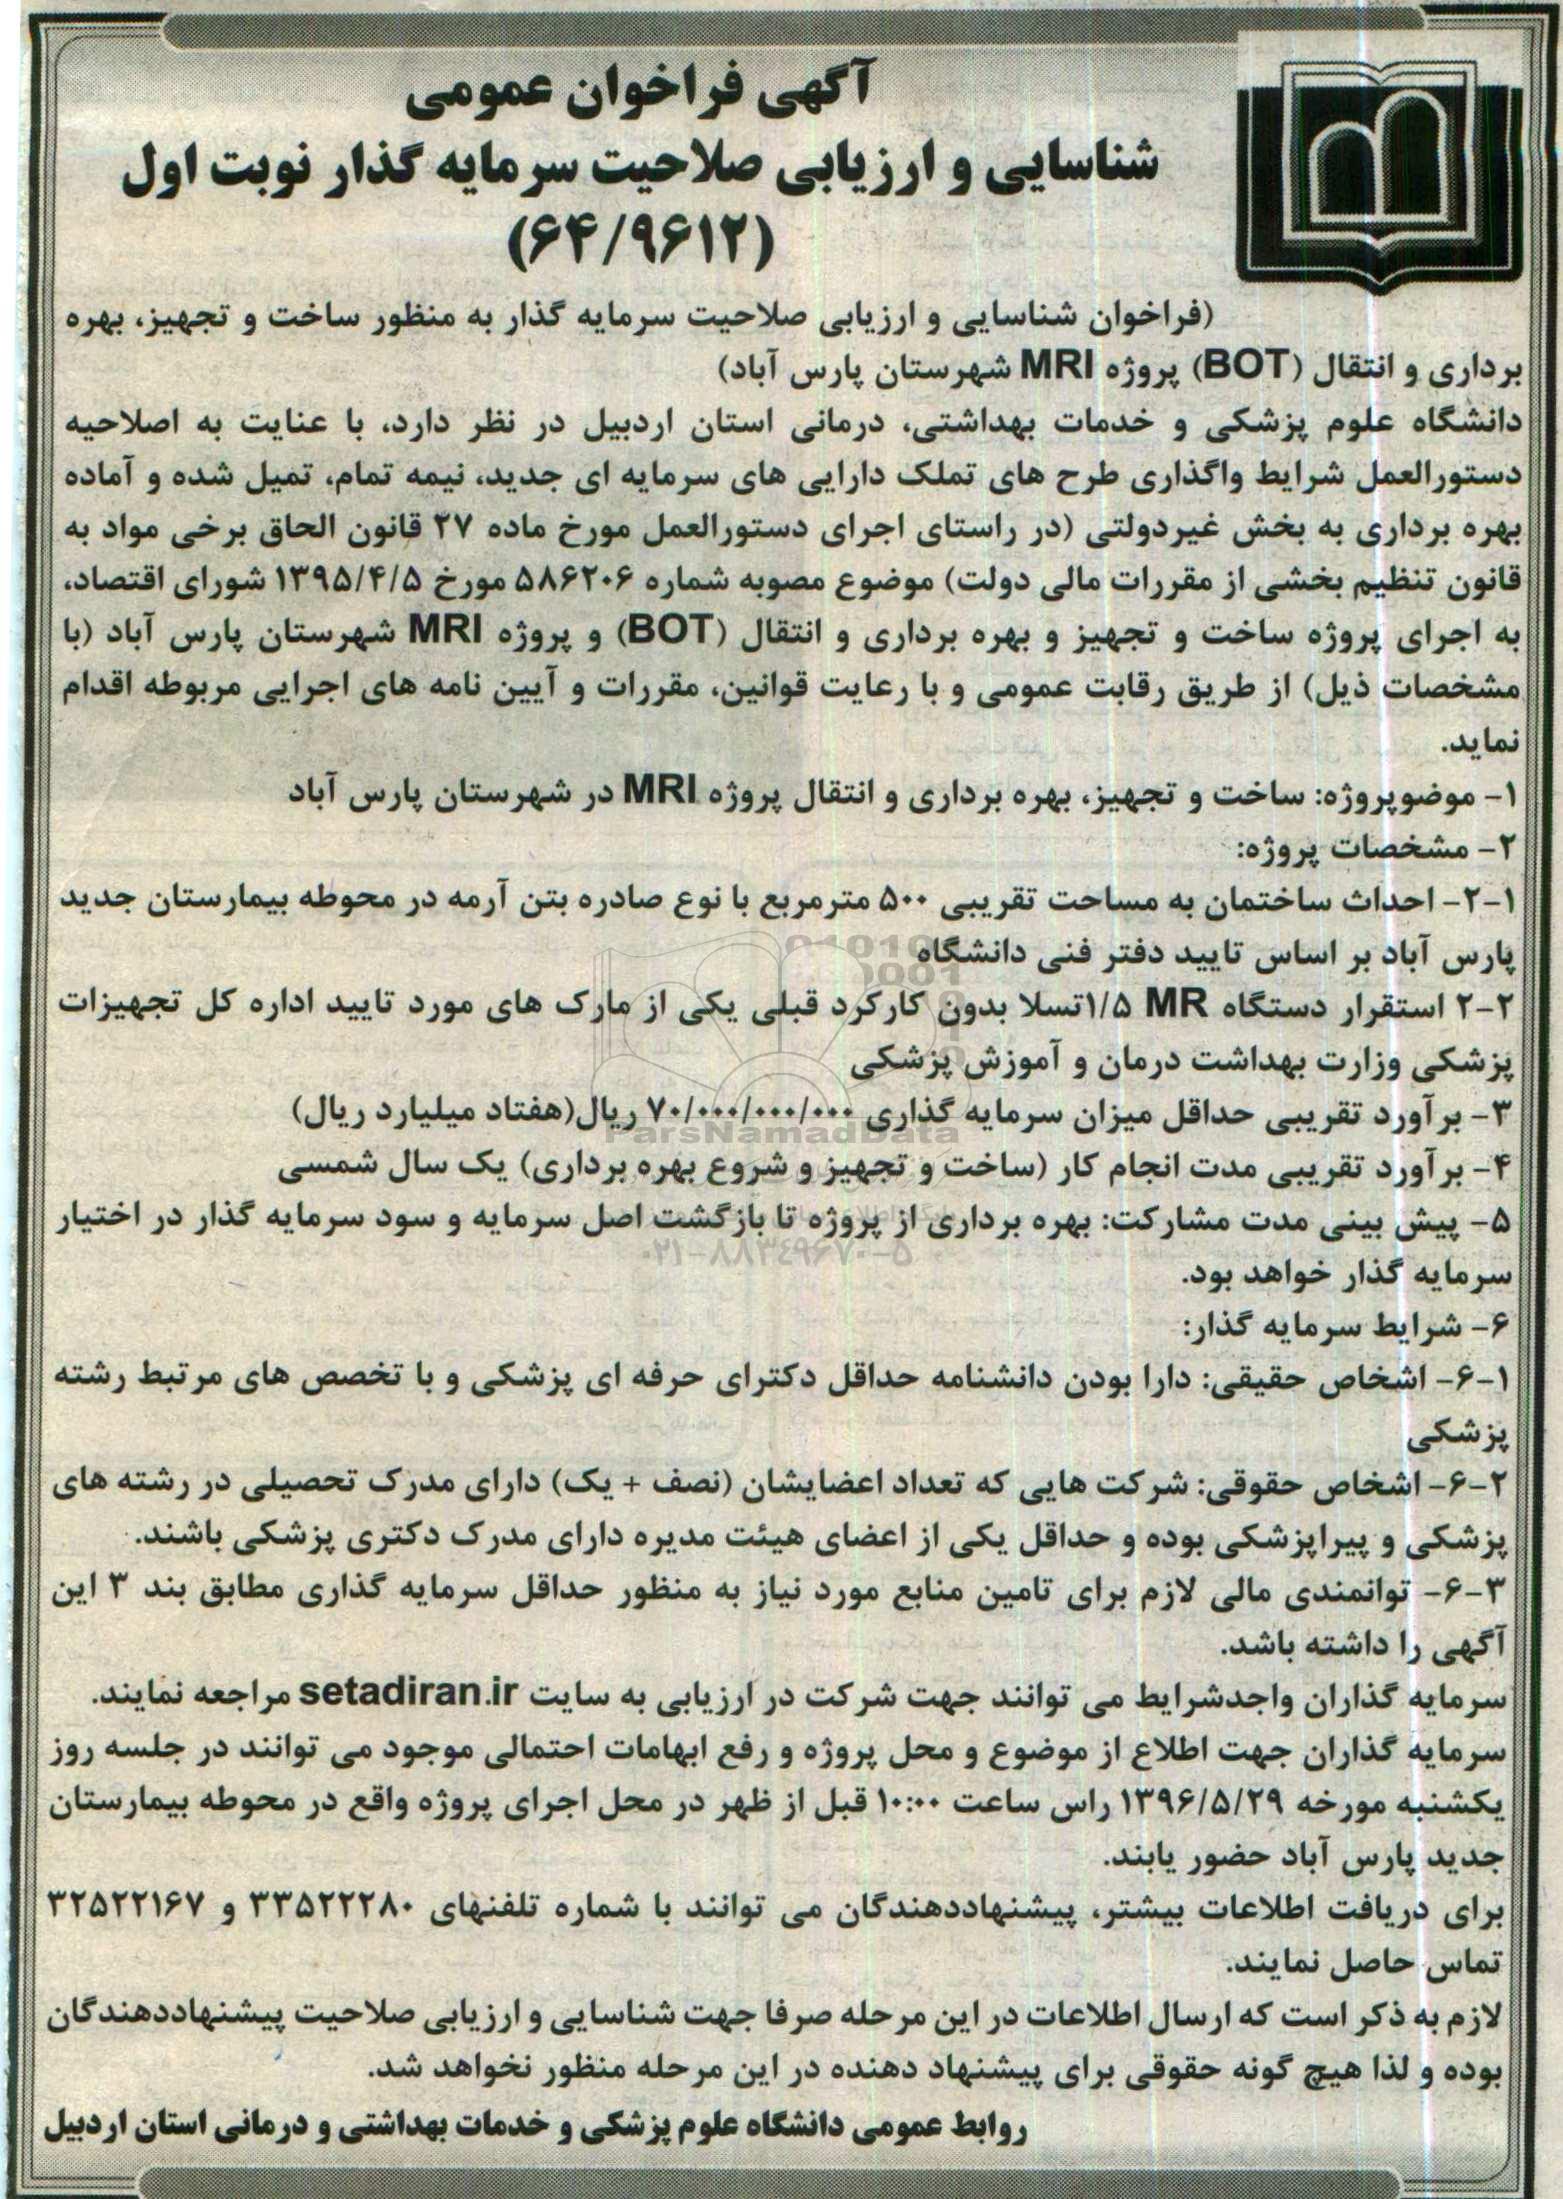 آگهی فراخوان عمومی
شناسایی و ارزیابی صلاحیت سرمایه گذار نوبت اول
(۶۴/۹۶۱۲)
(فراخوان شناسایی و ارزیابی صلاحیت سرمایه گذار به منظور ساخت و تجهیز، بهره
برداری و انتقال (BOT) پروژه MRI شهرستان پارس آباد)
دانشگاه علوم پزشکی و خدمات بهداشتی، درمانی استان اردبیل در نظر دارد، با عنایت به اصلاحیه
دستورالعمل شرایط واگذاری طرح های تملک دارایی های سرمایه ای جدید، نیمه تمام، تمیل شده و آماده
بهره برداری به بخش غیردولتی (در راستای اجرای دستورالعمل مورخ ماده ۲۷ قانون الحاق برخی مواد به
قانون تنظیم بخشی از مقررات مالی دولت) موضوع مصوبه شماره ۵۸۶۲۰۶ مورخ ۱۳۹۵/۴/۵ شورای اقتصاد،
به اجرای پروژه ساخت و تجهیز و بهره برداری و انتقال (BOT) و پروژه MRI شهرستان پارس آباد (با
مشخصات ذیل) از طریق رقابت عمومی و با رعایت قوانین، مقررات و آیین نامه های اجرایی مربوطه اقدام
نماید.
۱- موضوپروژه: ساخت و تجهیز، بهره برداری و انتقال پروژه MRI در شهرستان پارس آباد
۲- مشخصات پروژه:
۲-۱- احداث ساختمان به مساحت تقریبی ۵۰۰ مترمربع با نوع صادره بتن آرمه در محوطه بیمارستان جدید
پارس آباد بر اساس تایید دفتر فنی دانشگاه
۲-۲ استقرار دستگاه MR ۱/۵تسلا بدون کارکرد قبلی یکی از مارک های مورد تایید اداره کل تجهیزات
پزشکی وزارت بهداشت درمان و آموزش پزشکی
۳- برآورد تقریبی حداقل میزان سرمایه گذاری ۷۰/۰۰۰/۰۰۰/۰۰۰ ریال(هفتاد میلیارد ریال)
ParsNamadData
۴- برآورد تقریبی مدت انجام کار (ساخت و تجهیز و شروع بهره برداری) یک سال شمسی
۵- پیش بینی مدت مشارکت: بهره برداری از پروژه تا بازگشت اصل سرمایه و سود سرمایه گذار در اختیار
۰۲۱-۸۸۳۴۹۶۷۰-۵
سرمایه گذار خواهد بود.
۶- شرایط سرمایه گذار:
۶-۱- اشخاص حقیقی: دارا بودن دانشنامه حداقل دکترای حرفه ای پزشکی و با تخصص های مرتبط رشته
پزشکی
۶-۲- اشخاص حقوقی: شرکت هایی که تعداد اعضایشان (نصف + یک) دارای مدرک تحصیلی در رشته های
پزشکی و پیراپزشکی بوده و حداقل یکی از اعضای هیئت مدیره دارای مدرک دکتری پزشکی باشند.
۶-۳- توانمندی مالی لازم برای تامین منابع مورد نیاز به منظور حداقل سرمایه گذاری مطابق بند ۳ این
آگهی را داشته باشد.
سرمایه گذاران واجدشرایط می توانند جهت شرکت در ارزیابی به سایت setadiran.ir مراجعه نمایند.
سرمایه گذاران جهت اطلاع از موضوع و محل پروژه و رفع ابهامات احتمالی موجود می توانند در جلسه روز
یکشنبه مورخه ۱۳۹۶/۵/۲۹ راس ساعت ۱۰:۰۰ قبل از ظهر در محل اجرای پروژه واقع در محوطه بیمارستان
جدید پارس آباد حضور یابند.
برای دریافت اطلاعات بیشتر، پیشنهاددهندگان می توانند با شماره تلفنهای ۳۳۵۲۲۲۸۰ و ۳۲۵۲۲۱۶۷
تماس حاصل نمایند.
لازم به ذکر است که ارسال اطلاعات در این مرحله صرفا جهت شناسایی و ارزیابی صلاحیت پیشنهاددهندگان
بوده و لذا هیچ گونه حقوقی برای پیشنهاد دهنده در این مرحله منظور نخواهد شد.
روابط عمومی دانشگاه علوم پزشکی و خدمات بهداشتی و درمانی استان اردبیل